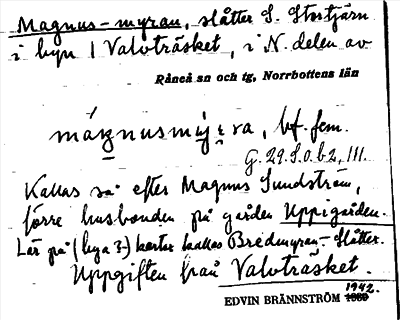 Magnus-myran, slåtter S. Stortjärn
i byn 1 Valvträsket, i N. delen av
Råneå sn och tg, Norrbottens län
mágnusmýra, bf. fem.
G. 29. S. o. b2, III.
Kallas så efter Magnus Sundström,
förre husbonden på gården Uppigården.
Lär på (laga 3-) kartor kallas Bredmyran-Slåtter.
Uppgiften från Valvträsket.
1942.
EDVIN BRÄNNSTRÖM